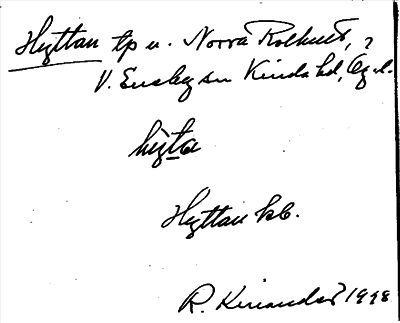 Hyttan tp u. Norra Rolhult, ?
V. Eneby sn Kinda hd, Ög.l.
hỳta
Hyttan kb.
R. Kinander 1998